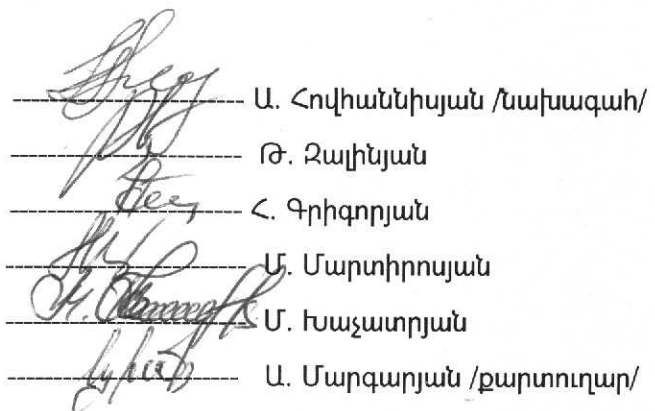 Ա. Հովհաննիսյան /նախագահ/
Թ. Զալինյան
Հ. Գրիգորյան
Մ. Մարտիրոսյան
Մ. Խաչատրյան
Ա. Մարգարյան /քարտուղար/